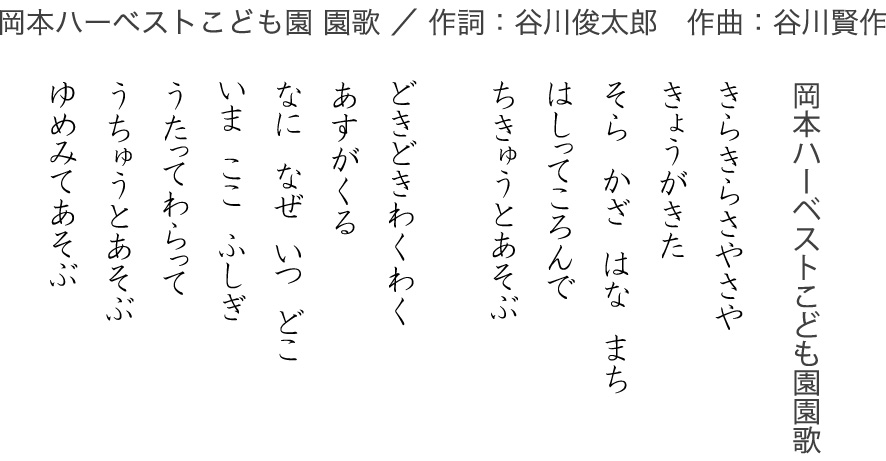 岡本ハーベストこども園 園歌 ／ 作詞：谷川俊太郎　作曲：谷川賢作
岡本ハーベストこども園園歌
きらきらさやさや
きょうがきた
そら　かざ　はな　まち
はしってころんで
ちきゅうとあそぶ
どきどきわくわく
あすがくる
なに　なぜ　いつ　どこ
いま　ここ　ふしぎ
うたってわらって
うちゅうとあそぶ
ゆめみてあそぶ